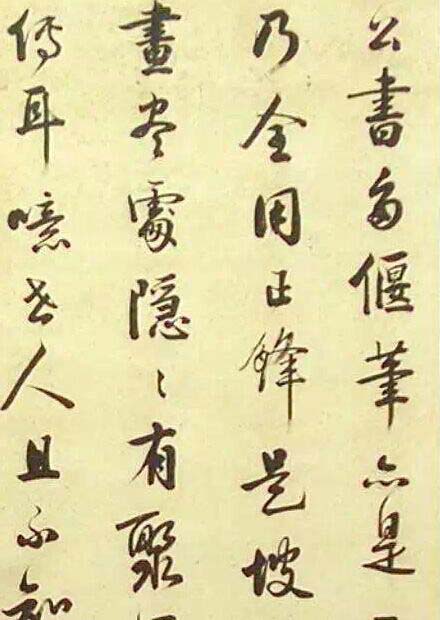 公書多偃筆亦是
乃全用正鋒是坡
畫盡處隱〻有聚
傳耳噫世人且不知